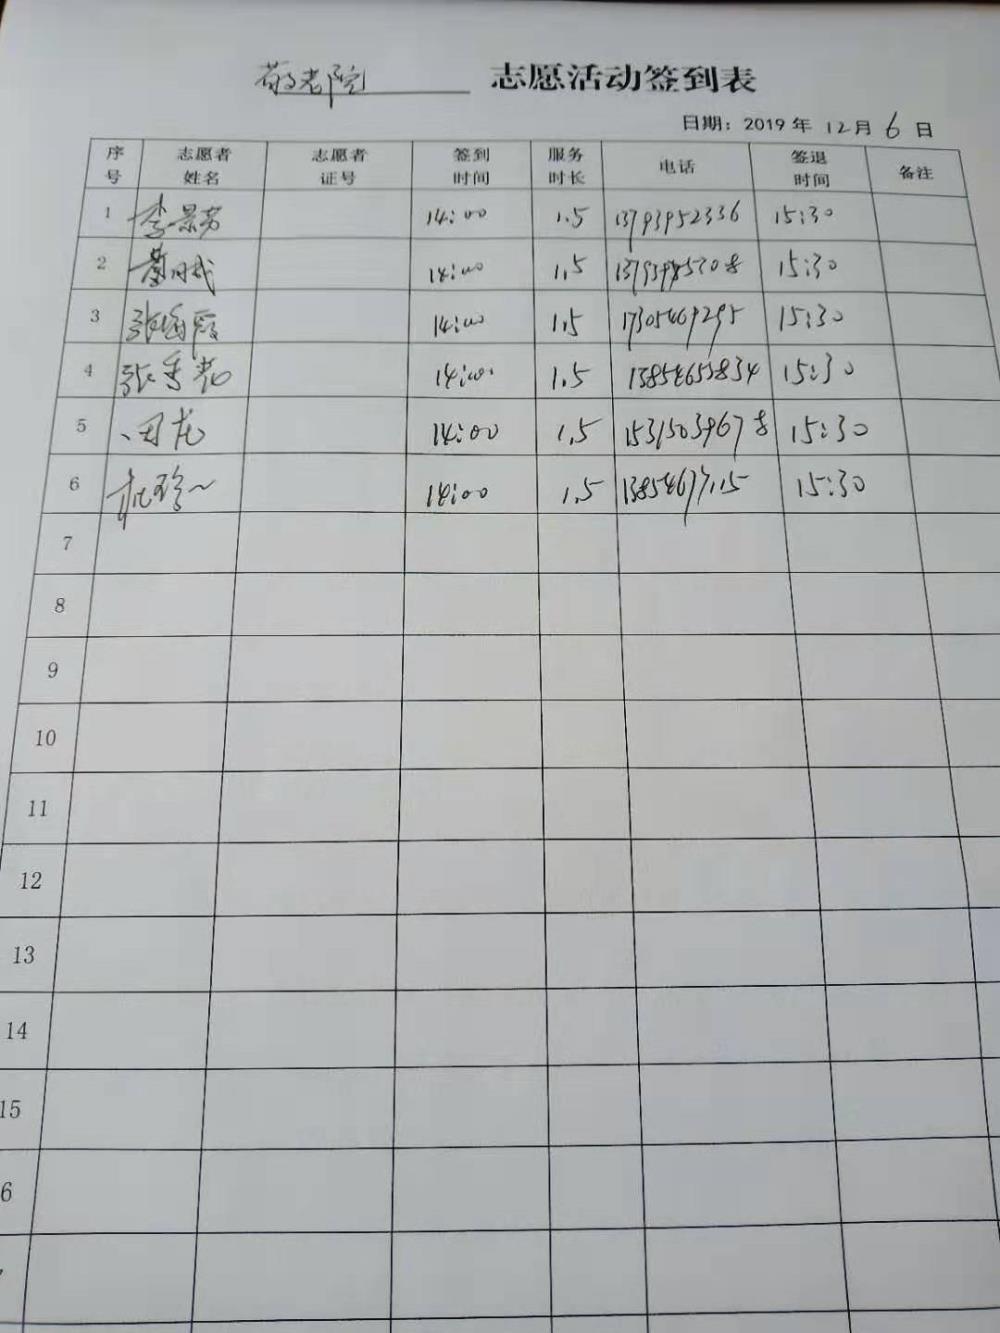 敬老院 志愿活动签到表
日期：2019年12月6日
序号 志愿者姓名 志愿者证号 签到时间 服务时长 电话 签退时间 备注
1 李景芳 14:00 1.5 13793952336 15:30
2 14:00 1.5 15:30
3 14:00 1.5 17305469295 15:30
4 张秀花 14:00 1.5 13854653834 15:30
5 田龙 14:00 1.5 15315039678 15:30
6 14:00 1.5 15:30
7
8
9
10
11
12
13
14
15
6